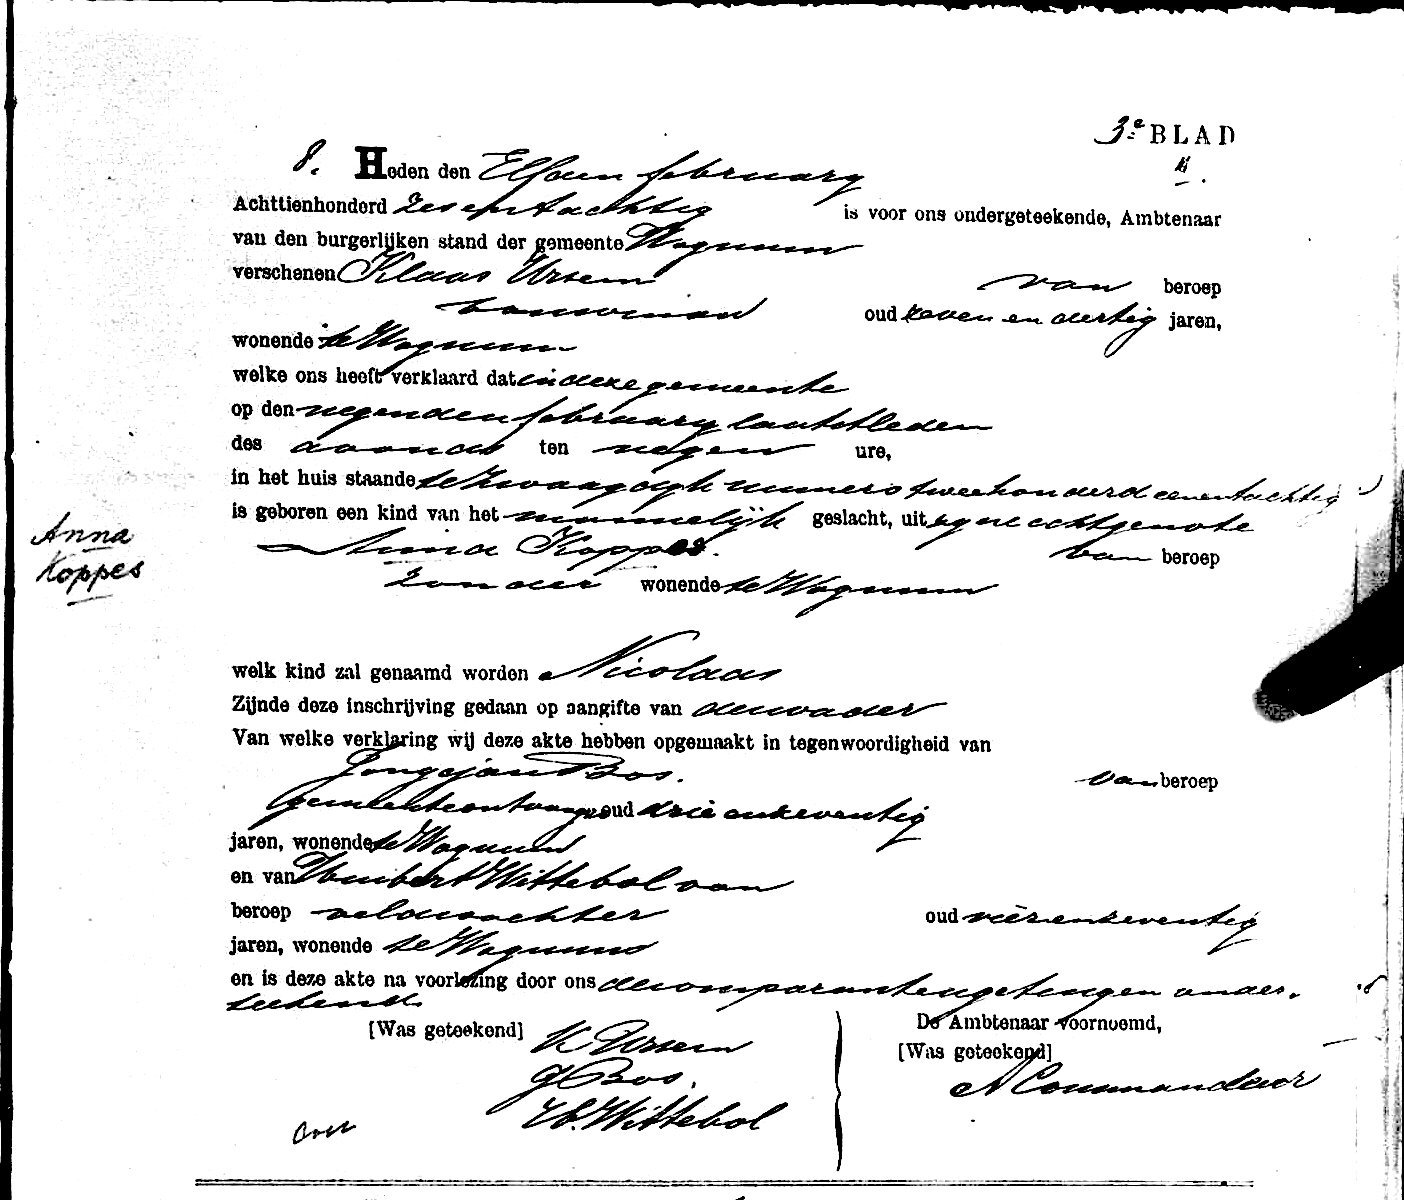 3e BLAD
8. Heden den Elfden february
Achttienhonderd zes en tachtig is voor ons ondergeteekende, Ambtenaar
van den burgerlijken stand der gemeente Wognum
verschenen Klaas Ursem van beroep
bouwman oud zeven en dertig jaren,
wonende te Wognum
welke ons heeft verklaard dat in deze gemeente
op den negenden february laatstleden
des avonds ten negen ure,
in het huis staande te Zwaagdijk numero tweehonderd eenentachtig
is geboren een kind van het mannelijk geslacht, uit zijne echtgenote
Anna Koppes. van beroep
Anna
Koppes
zonder wonende te Wognum
welk kind zal genaamd worden Nicolaas
Zijnde deze inschrijving gedaan op aangifte van den vader
Van welke verklaring wij deze akte hebben opgemaakt in tegenwoordigheid van
Jongejan Bos. van beroep
gemeenteontvanger oud drie en zeventig
jaren, wonende te Wognum
en van Huibert Wittebol van
beroep veldwachter oud vier en zeventig
jaren, wonende te Wognum
en is deze akte na voorlezing door ons de comparant en getuigen onder-
teekend.
[Was geteekend] K Ursem
De Ambtenaar voornoemd,
J Bos.
[Was geteekend]
H. Wittebol
Commandeur